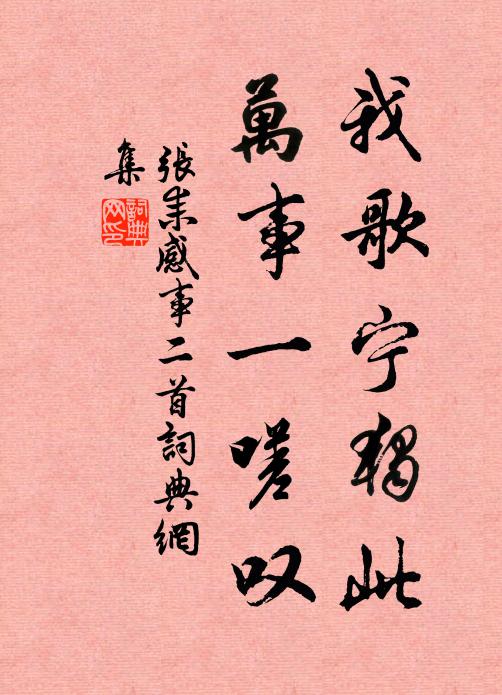 我歌宁獨此
萬事一嗟叹
張耒感事二首詞典網
集
詞典
网印